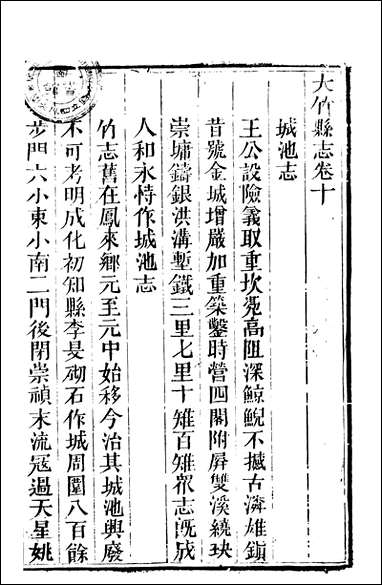 大竹縣志卷十
城池志
王公設險義取重坎凴高阻深鯨鯢不撼古潾雄鎮
昔號金城增嚴加重築鑿時營四閣附屏雙溪繞玦
崇墉鑄銀洪溝塹鐵三里七里十雉百雉衆志旣成
人和永恃作城池志
竹志舊在鳳來鄉元至元中始移今治其城池興廢
不可考明成化初知縣李旻砌石作城周圍八百餘
步門六小東小南二門後閉崇禎末流寇過天星姚